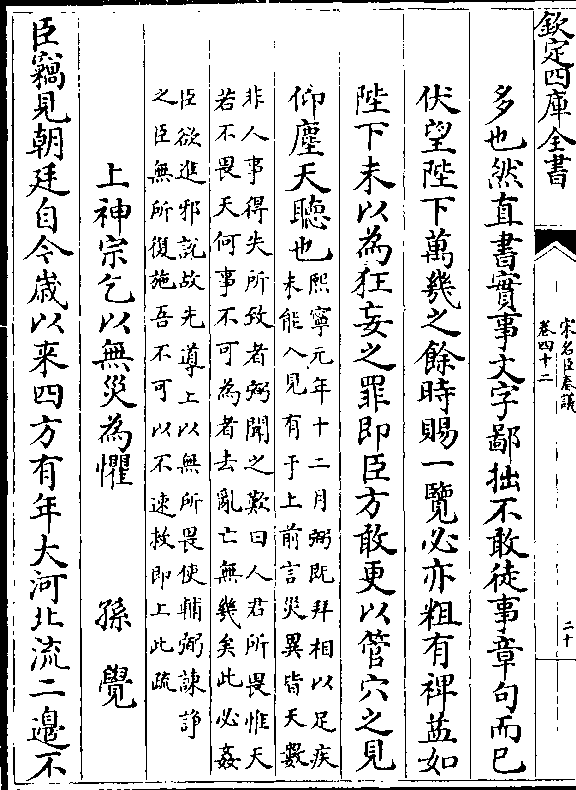 欽定四庫全書
宋名臣奏議
卷四十二
二十
多也然直書實事文字鄙拙不敢徒事章句而已
伏望陛下萬幾之餘時賜一覽必亦粗有裨益如
陛下未以為狂妄之罪即臣方敢更以管穴之見
仰塵天聽也熙寧元年十二月弼既拜相以足疾
未能入見有于上前言災異皆天數
非人事得失所致者弼聞之歎曰人君所畏惟天
若不畏天何事不可為者去亂亡無幾矣此必姦
臣欲進邪說故先導上以無所畏使輔弼諫諍
之臣無所復施吾不可以不速救即上此疏
上神宗乞以無災為懼 孫覺
臣竊見朝廷自今歲以來四方有年大河北流二邊不